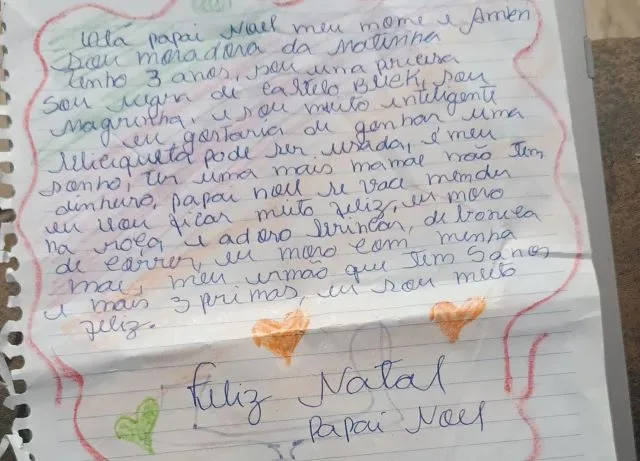 Olá papai Noel meu nome e Amben
sou moradora da Matinha
tenho 3 anos, sou uma princesa
sou negra de castelo Bleck, sou
magrinha, e sou muito inteligente
eu gostaria de ganhar uma
pode ser usada, é meu
sonho, ter uma mais mamãe não tem
dinhuro, papai noel se vace mander
eu vou ficar muito feliz, eu moro
na roça e adoro brincar, de boneca
de correr, eu moro com minha
mae, meu irmão que tem 5 anos
e mais 3 primas, eu sou muito
feliz.
feliz Natal
Papai Noel